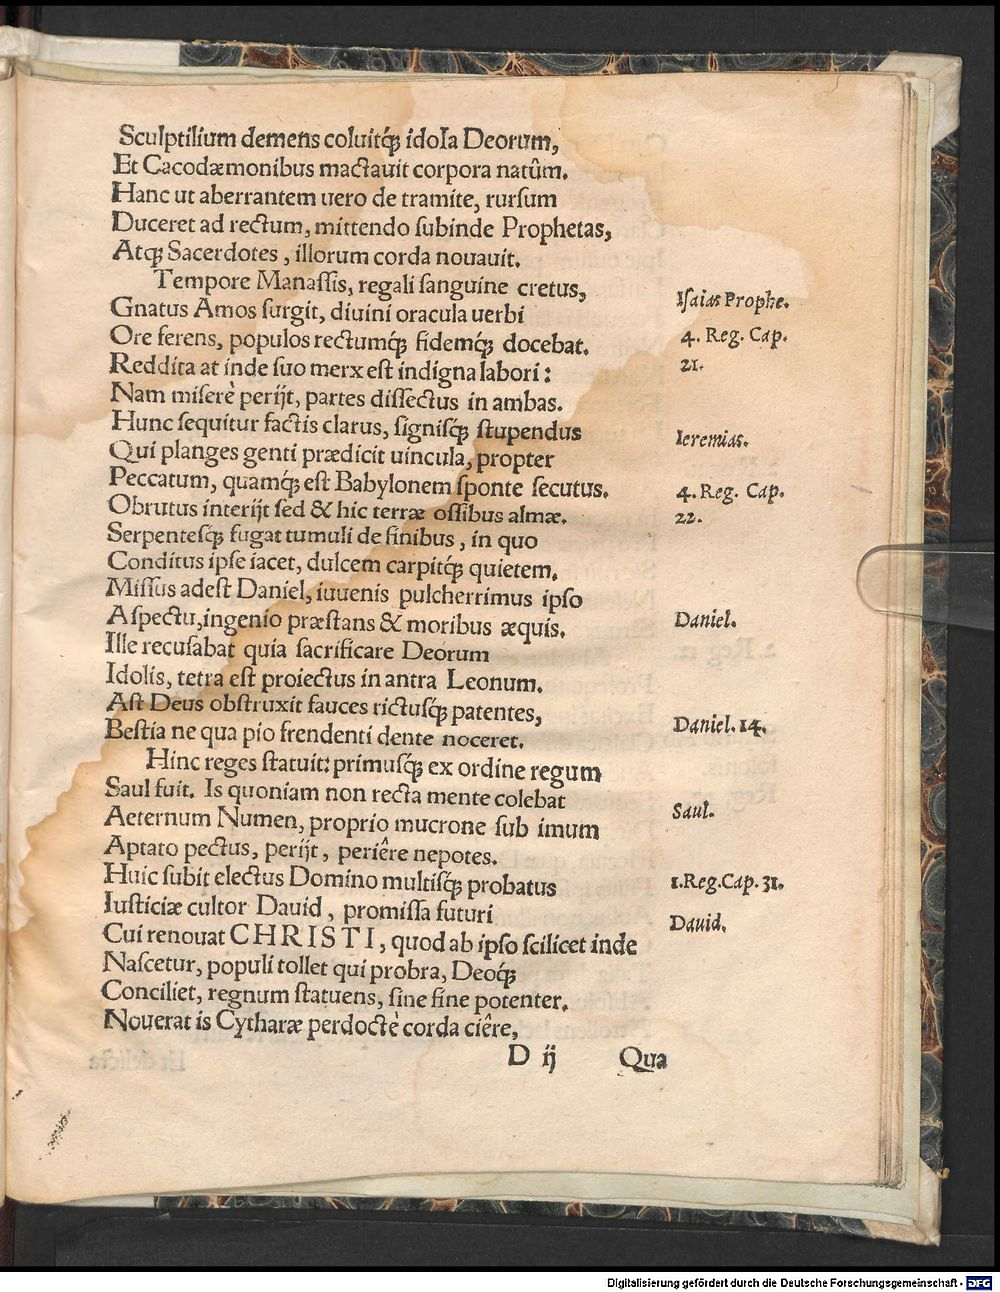 Sculptilium demens coluitq́; idola Deorum,
Et Cacodæmonibus mactauit corpora natûm.
Hanc ut aberrantem uero de tramite, rurſum
Duceret ad rectum, mittendo ſubinde Prophetas,
Atq́; Sacerdotes, illorum corda nouauit.
Tempore Manaſſis, regali ſanguine cretus,
Iſaias Prophe.
Gnatus Amos ſurgit, diuini oracula uerbi
Ore ferens, populos rectumq́; fidemq́; docebat.
4. Reg. Cap.
Reddita at inde ſuo merx eſt indigna labori:
21.
Nam miſerè perijt, partes diſſectus in ambas.
Hunc ſequitur factis clarus, ſigniſq́; ſtupendus
Ieremias.
Qui planges genti prædicit uincula, propter
Peccatum, quamq́; eſt Babylonem ſponte ſecutus.
4. Reg. Cap.
Obrutus interijt ſed & hic terræ oſſibus almæ.
22.
Serpenteſq́; fugat tumuli de finibus, in quo
Conditus ipſe iacet, dulcem carpitq́; quietem.
Miſſus adeſt Daniel, iuuenis pulcherrimus ipſo
Aſpectu, ingenio præſtans & moribus æquis.
Daniel.
Ille recuſabat quia ſacrificare Deorum
Idolis, tetra eſt proiectus in antra Leonum.
Aſt Deus obſtruxit fauces rictuſq́; patentes,
Daniel. 14.
Beſtia ne qua pio frendenti dente noceret.
Hinc reges ſtatuit: primuſq́; ex ordine regum
Saul fuit. Is quoniam non recta mente colebat
Saul.
Aeternum Numen, proprio mucrone ſub imum
Aptato pectus, perijt, periêre nepotes.
Huic ſubit electus Domino multiſq́; probatus
1. Reg. Cap. 31.
Iuſticiæ cultor Dauid, promiſſa futuri
Dauid.
Cui renouat CHRISTI, quod ab ipſo ſcilicet inde
Naſcetur, populi tollet qui probra, Deoq́;
Conciliet, regnum ſtatuens, ſine fine potenter.
Nouerat is Cytharæ perdoctè corda ciêre,
D ij Qua
Digitalisierung gefördert durch die Deutsche Forschungsgemeinschaft - DFG